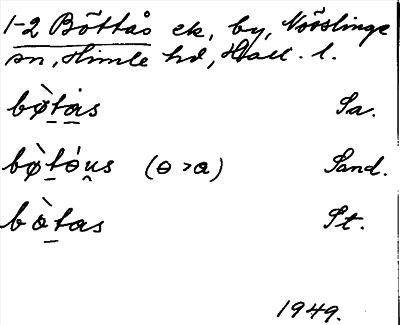 1-2 Böttås ek, by, Nösslinge
sn, Himle hd, Hall. l.
bø̀t̠a̠s Sa.
bø̀t̠ɵ́u̯s (ɵ > a) Sand.
bɵ̀t̠as St.
1949.